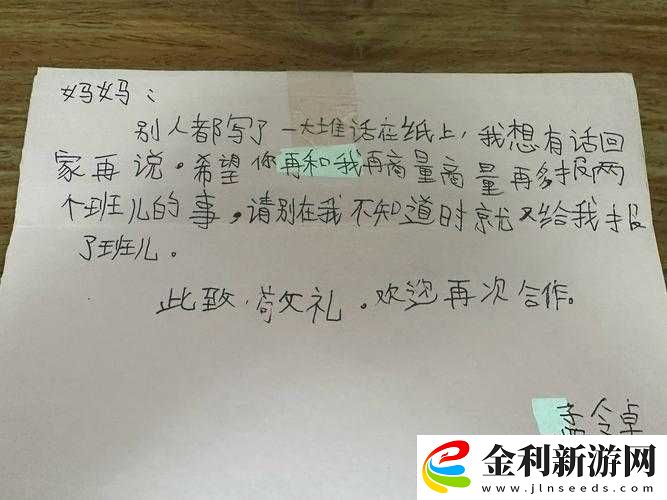 妈妈：
别人都写了一大堆话在纸上，我想有话回
家再说。希望你再和我再商量商量再多报两
个班儿的事，请别在我不知道时就又给我报
了班儿。
此致，敬礼。欢迎再次合作。
孟令卓
金利新游网
www.jlnseeds.com